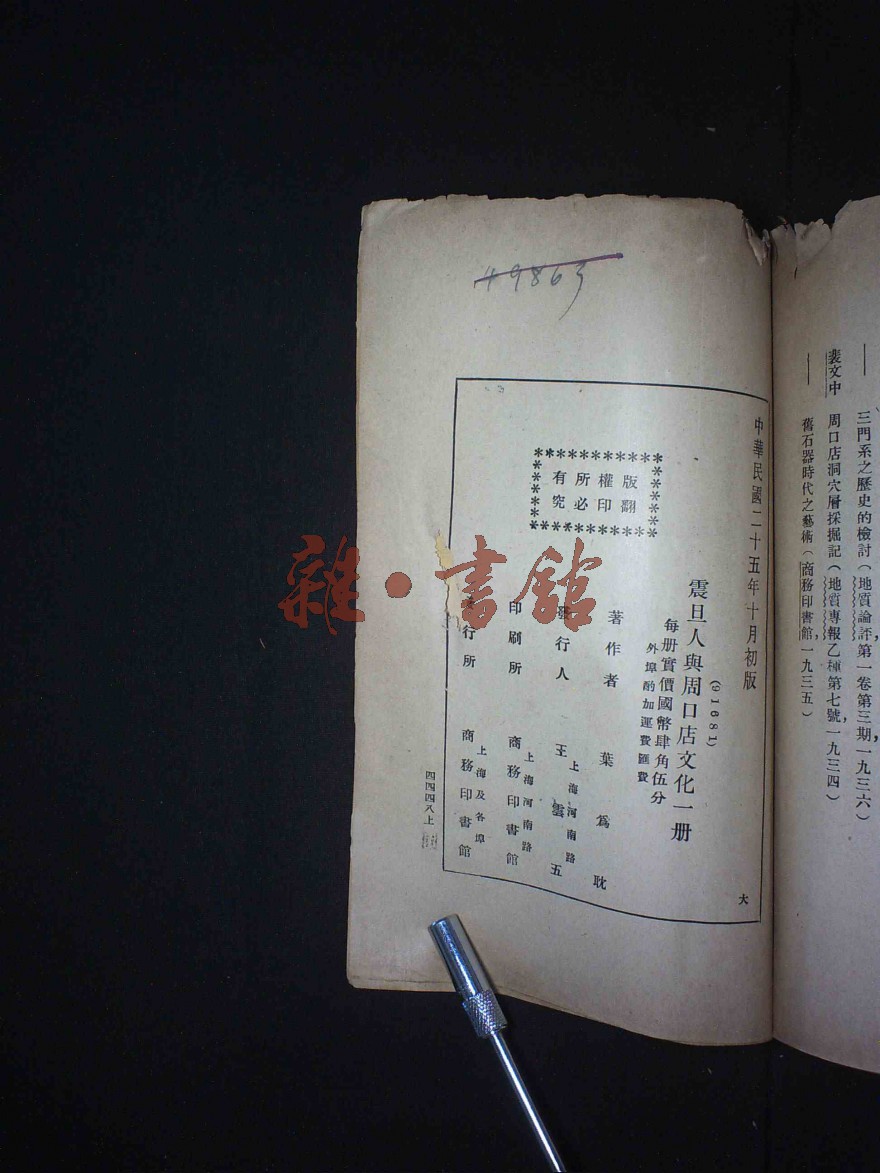 三門系之歷史的檢討（地質論評，第一卷第三期，一九三六）
裴文中　周口店洞穴層採掘記（地質專報乙種第七號，一九三四）
舊石器時代之藝術（商務印書館，一九三五）
49863
中華民國二十五年十月初版
版權所有
翻印必究
(91681)
震旦人與周口店文化一册
每册實價國幣肆角伍分
外埠酌加運費匯費
著作者　葉為耽
發行人　王雲五
上海河南路
印刷所　商務印書館
上海河南路
發行所　商務印書館
上海及各埠
大
四四四八上
雜·書館